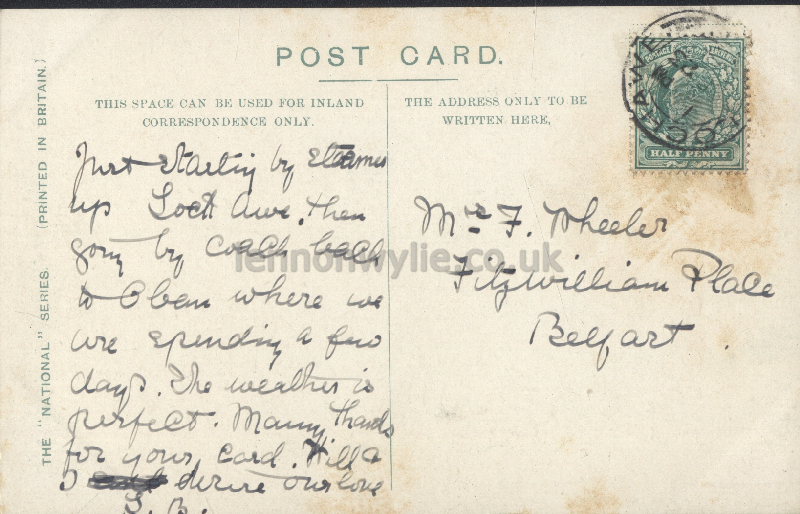 POST CARD.
THIS SPACE CAN BE USED FOR INLAND
CORRESPONDENCE ONLY.
THE ADDRESS ONLY TO BE
WRITTEN HERE,
THE "NATIONAL" SERIES. (PRINTED IN BRITAIN.)
Just starting by steamer
up Loch Awe, then
going by coach back
to Oban where we
are spending a few
days. The weather is
perfect. Many thanks
for your card. Will &
I desire our love
S. B.
Mr. F. Wheeler
Fitzwilliam Place
Belfast.
POSTAGE
HALF PENNY
LOCHAWE
lennonwylie.co.uk